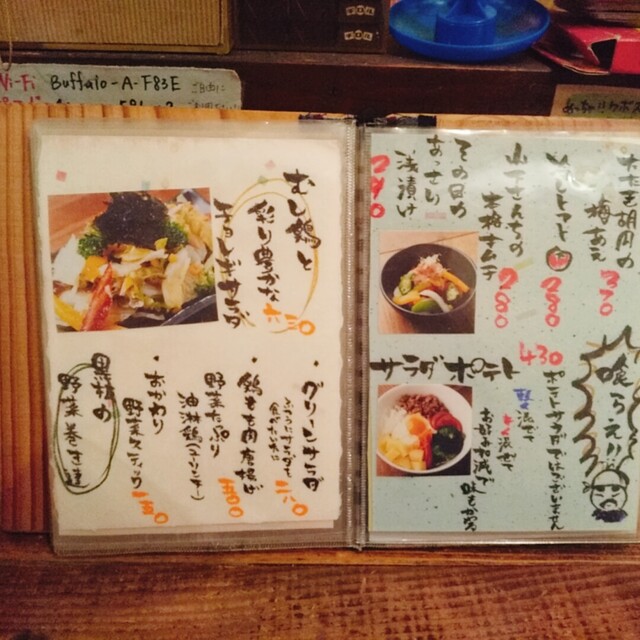 Wi-Fi Buffalo-A-F83E
むし鶏と
彩り豊かな
チョレギサラダ
六三〇
・グリーンサラダ
二八〇
・鶏もも肉唐揚げ
野菜たっぷり
油淋鶏(ユーリンチー)
五五〇
・おかわり
野菜スティック
一五〇
黒豚の
野菜巻き達
梅あえ
330
280
山下さんちの
本格キムチ
280
その日の
あっさり
浅漬け
290
喰らえ!!
サラダポテト
430
ポテトサラダではございません
混ぜて
混ぜて
お好み加減で